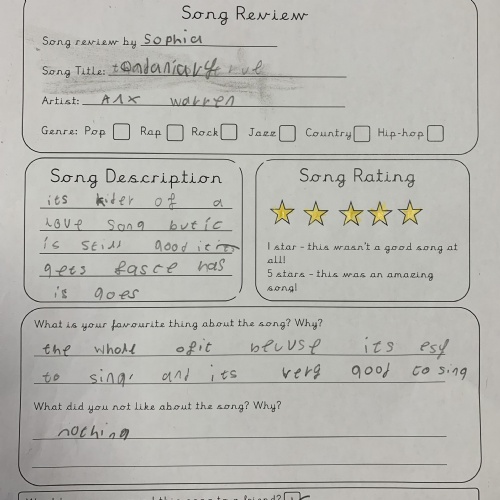 Song Review
Song review by Sophia
Song Title:
Artist: Alx warren
Genre: Pop Rap Rock Jazz Country Hip-hop
Song Description
its kider of a
love song but it
is still good
gets fasce has
is goes
Song Rating
1 star - this wasn't a good song at
all!
5 stars - this was an amazing
song!
What is your favourite thing about the song? Why?
the whole ofit becuse its esy
to sing. and its very good to sing
What did you not like about the song? Why?
nothing